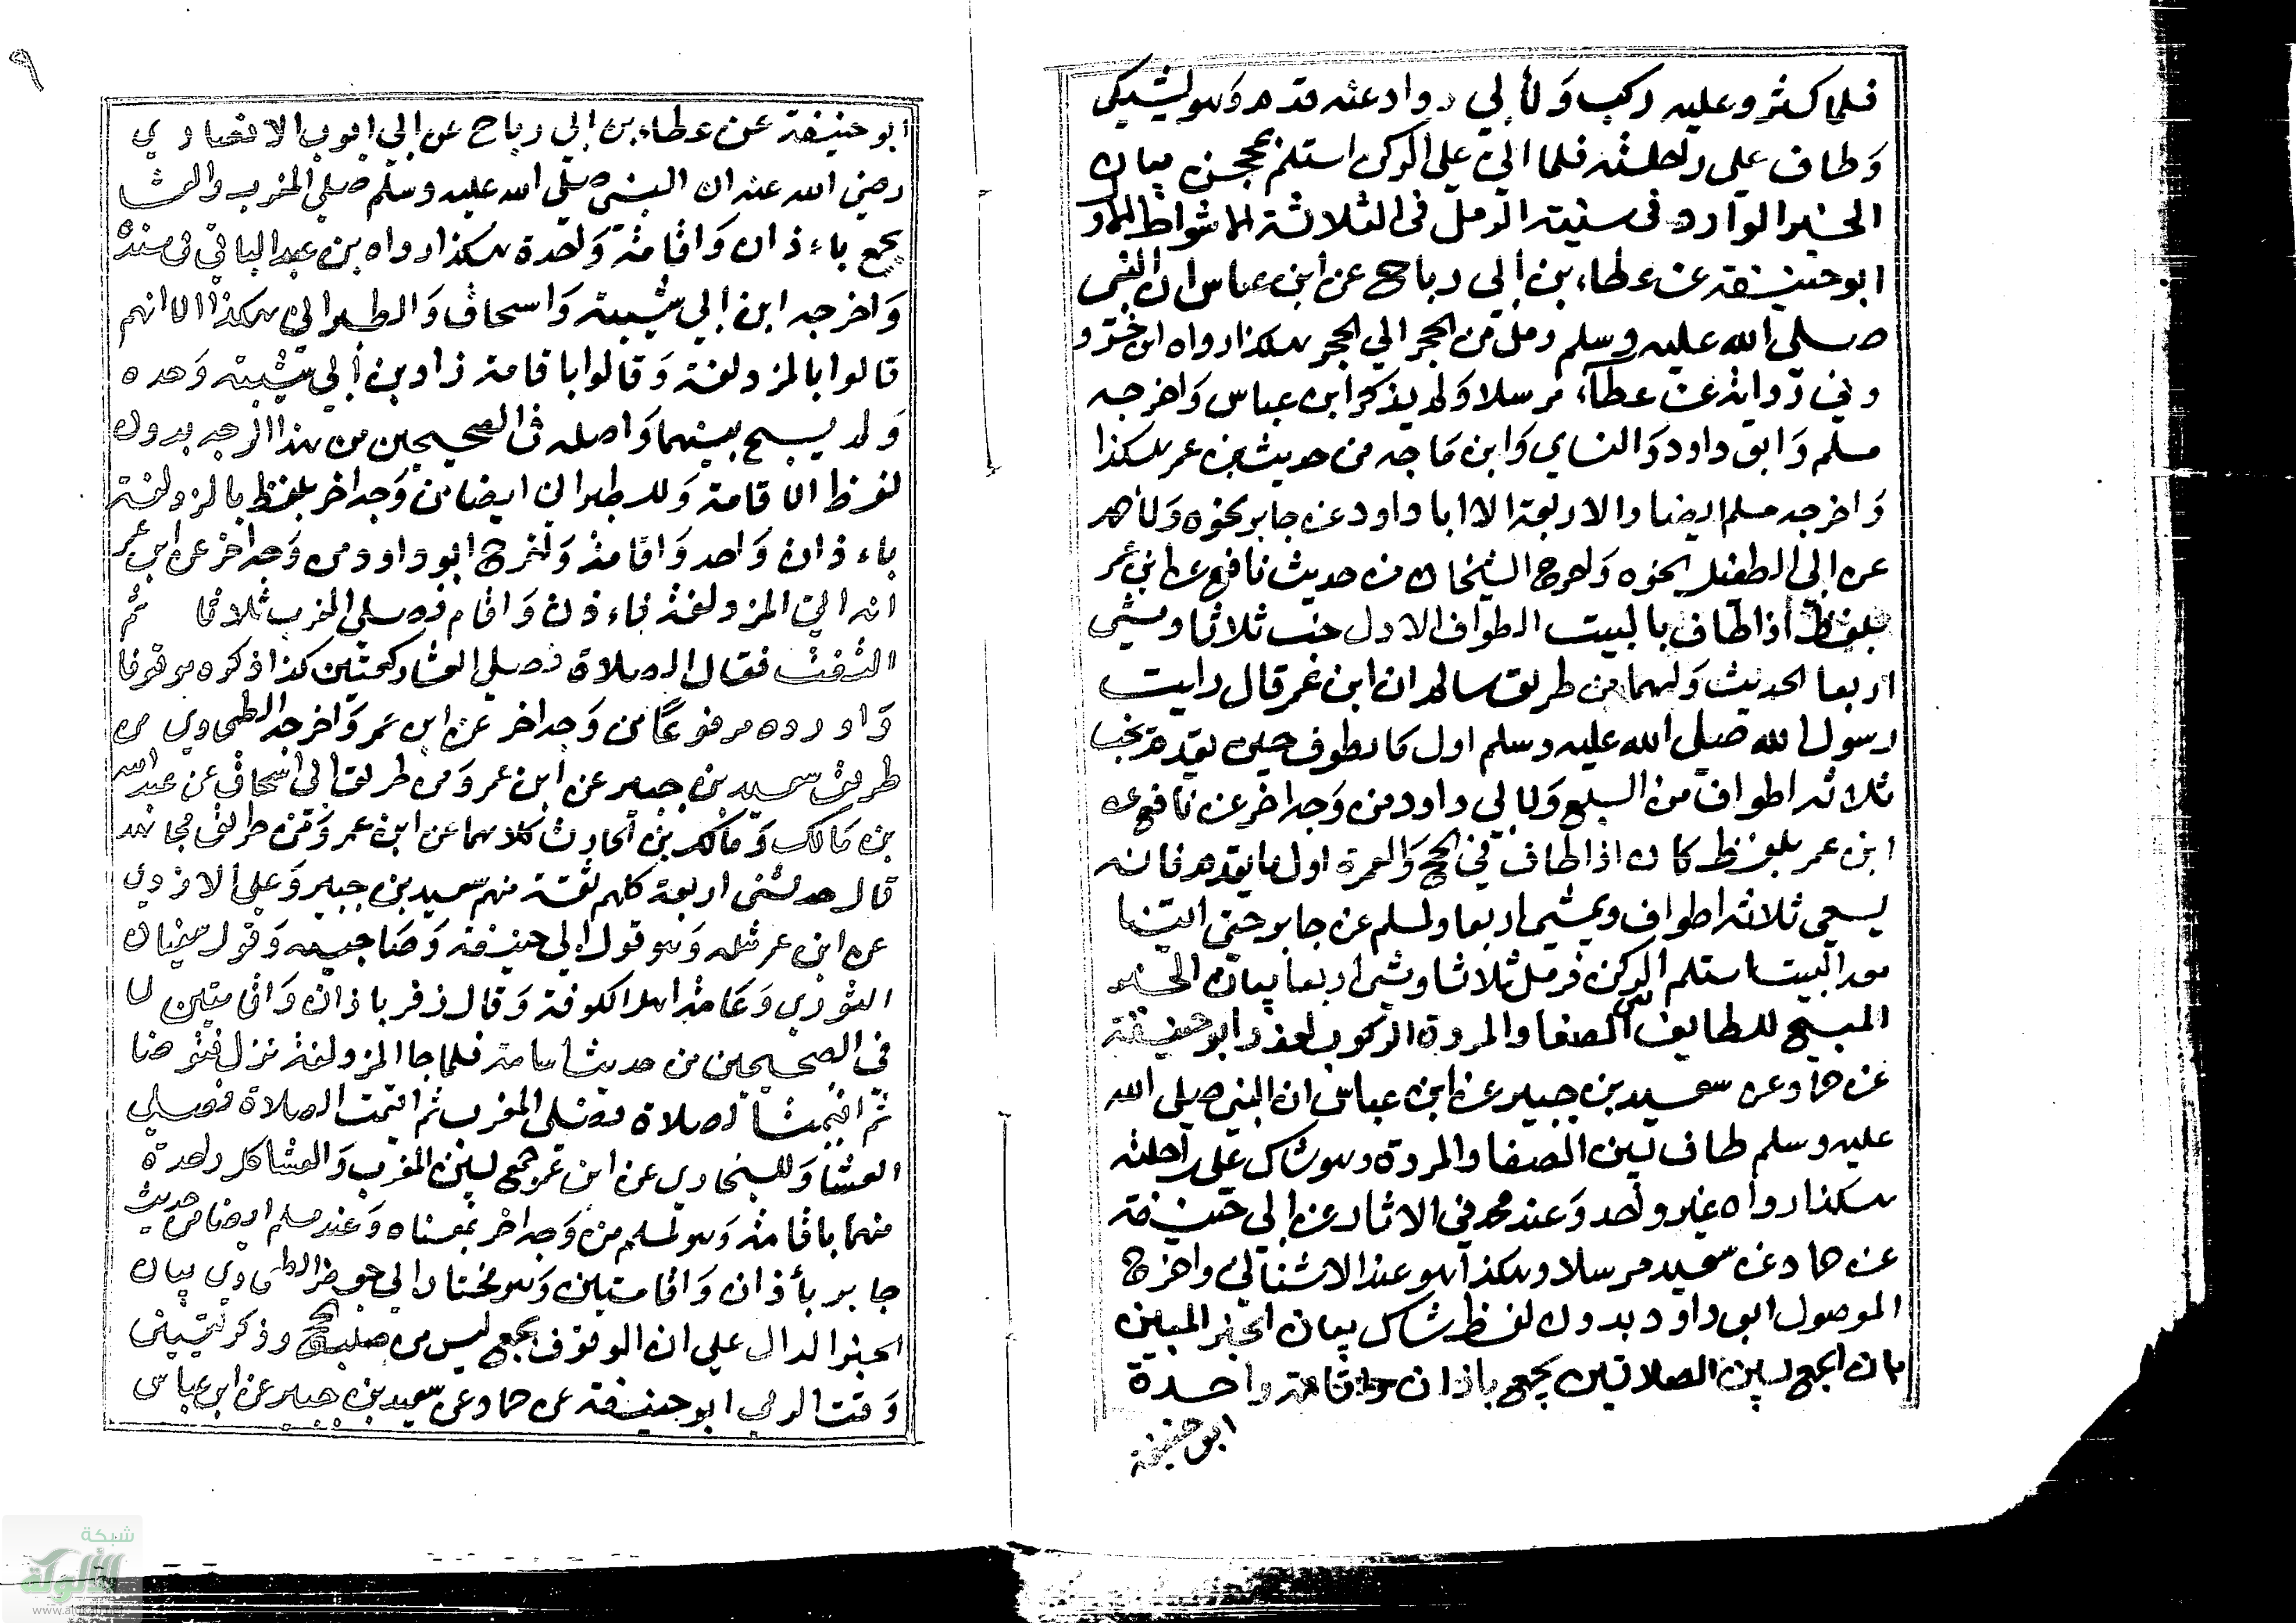 فلما كثر وعليه ركب ولأبي داود عنه قدم وهو يشتكي
وطاف على راحلته فلما اتى على الركن استلم بمحجن بيان
الخبر الوارد في سنية الرمل في الثلاثة الاشواط الاول
ابو حنيفة عن عطاء بن ابي رباح عن ابن عباس ان النبي
صلى الله عليه وسلم رمل من الحجر الى الحجر هكذا رواه ابن خسرو
وفي رواية عن عطاء مرسلا ولم يذكر ابن عباس واخرجه
مسلم وابو داود والنساي وابن ماجه من حديث بن عمر هكذا
واخرجه مسلم ايضا والاربعة الا ابا داود عن جابر نحوه ولأحمد
عن ابي الطفيل نحوه واخرج الشيخان من حديث نافع عن ابن عمر
بلفظ اذا طاف بالبيت الطواف الاول خب ثلاثا ومشى
اربعا الحديث ولهما من طريق سالم ان ابن عمر قال رايت
رسول الله صلى الله عليه وسلم اول ما يطوف حين يقدم يخب
ثلاثة اطواف من السبع ولابي داود من وجه اخر عن نافع عن
ابن عمر بلفظ كان اذا طاف في الحج والعمرة اول ما يقدم فانه
يسعى ثلاثة اطواف ويمشي اربعا ولمسلم عن جابر حتى اتينا
معه البيت استلم الركن فرمل ثلاثا ومشى اربعا بيان الخبر
المبيح للطايف بين الصفا والمروة الركوب لعذر ابو حنيفة
عن حماد عن سعيد بن جبير عن ابن عباس ان النبي صلى الله
عليه وسلم طاف بين الصفا والمروة وهو شاك على راحلته
هكذا رواه غير واحد وعند محمد في الاثار عن ابي حنيفة
عن حماد عن سعيد مرسلا وهكذا هو عند الاشناني واخرج
الموصول ابو داود بدون لفظ شاك بيان الخبر المبين
بان الجمع بين الصلاتين بجمع باذان واقامة واحدة
ابو حنيفة
٩
ابو حنيفة عن عطاء بن ابي رباح عن ابي ايوب الانصاري
رضي الله عنه ان النبي صلى الله عليه وسلم صلى المغرب والعشا
بجمع باءذان واقامة واحدة هكذا رواه بن عبد الباقي في مسنده
واخرجه ابن ابي شيبة واسحاق والطبراني هكذا الا انهم
قالوا بالمزدلفة وقالوا باقامة زاد بن أبي شيبة وحده
ولم يسبح بينهما واصله في الصحيحين من هذا الوجه بدون
لفظ الاقامة وللطبراني ايضا من وجه اخر بلفظ بالمزدلفة
باءذان واحد واقامة واخرج ابو داود من وجه اخر عن ابن عمر
انه اتى المزدلفة فاءذن واقام فصلى المغرب ثلاثا ثم
التفت فقال الصلاة فصلى العشا ركعتين كذا ذكره موقوفا
واورده مرفوعًا من وجه اخر عن ابن عمر واخرجه الطحاوي من
طريق سعيد بن جبير عن ابن عمر ومن طريق ابي اسحاق عن عبد الله
بن مالك ومالك بن الحارث كلاهما عن ابن عمر ومن طريق مجاهد
قال حدثني اربعة كلهم ثقة منهم سعيد بن جبير وعلي الازدي
عن ابن عمر مثله وهو قول ابي حنيفة وصاحبيه وقول سفيان
الثوري وعامة اهل الكوفة وقال زفر باذان واقامتين لما
في الصحيحين من حديث اسامة فلما جا المزدلفة نزل فتوضا
ثم اقيمت الصلاة فصلى المغرب ثم اقيمت الصلاة فصلى
العشا وللبخاري عن ابن عمر جمع بين المغرب والعشا كل واحدة
منهما باقامة وهو لمسلم من وجه اخر بمعناه وعند مسلم ايضا من حديث
جابر بأذان واقامتين وهو مختار ابي جعفر الطحاوي بيان
الخبر الدال على ان الوقوف بجمع ليس من صلب الحج وذكر
وقت الرمي ابو حنيفة عن حماد عن سعيد بن جبير عن ابن عباس
شبكة
الألوكة